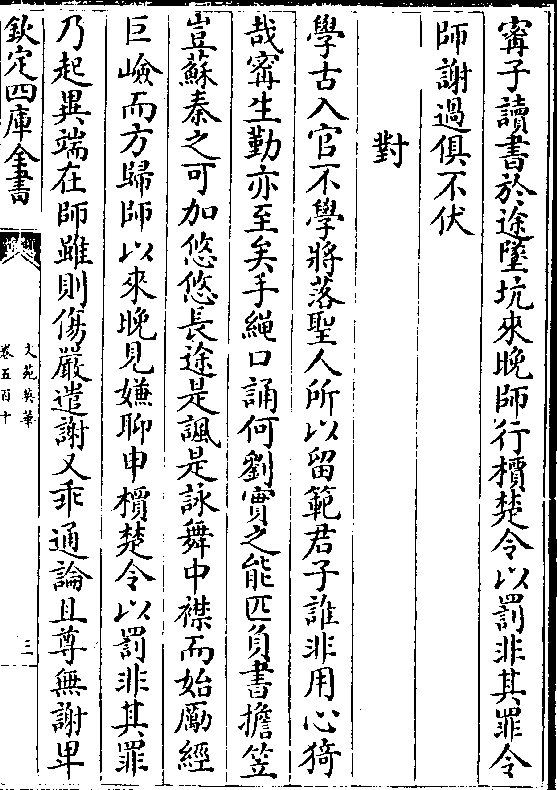 甯子讀書於途墜坑來晚師行檟楚令以罰非其罪令
師謝過俱不伏
對
學古入官不學將落聖人所以留範君子誰非用心猗
哉甯生勤亦至矣手繩口誦何劉寶之能匹負書擔笠
豈蘇秦之可加悠悠長途是諷是詠舞中襟而始勵經
巨嶮而方歸師以來晚見嫌聊申檟楚令以罰非其罪
乃起異端在師雖則傷嚴遣謝又乖通論且尊無謝卑
欽定四庫全書
文苑英華
卷五百十
三